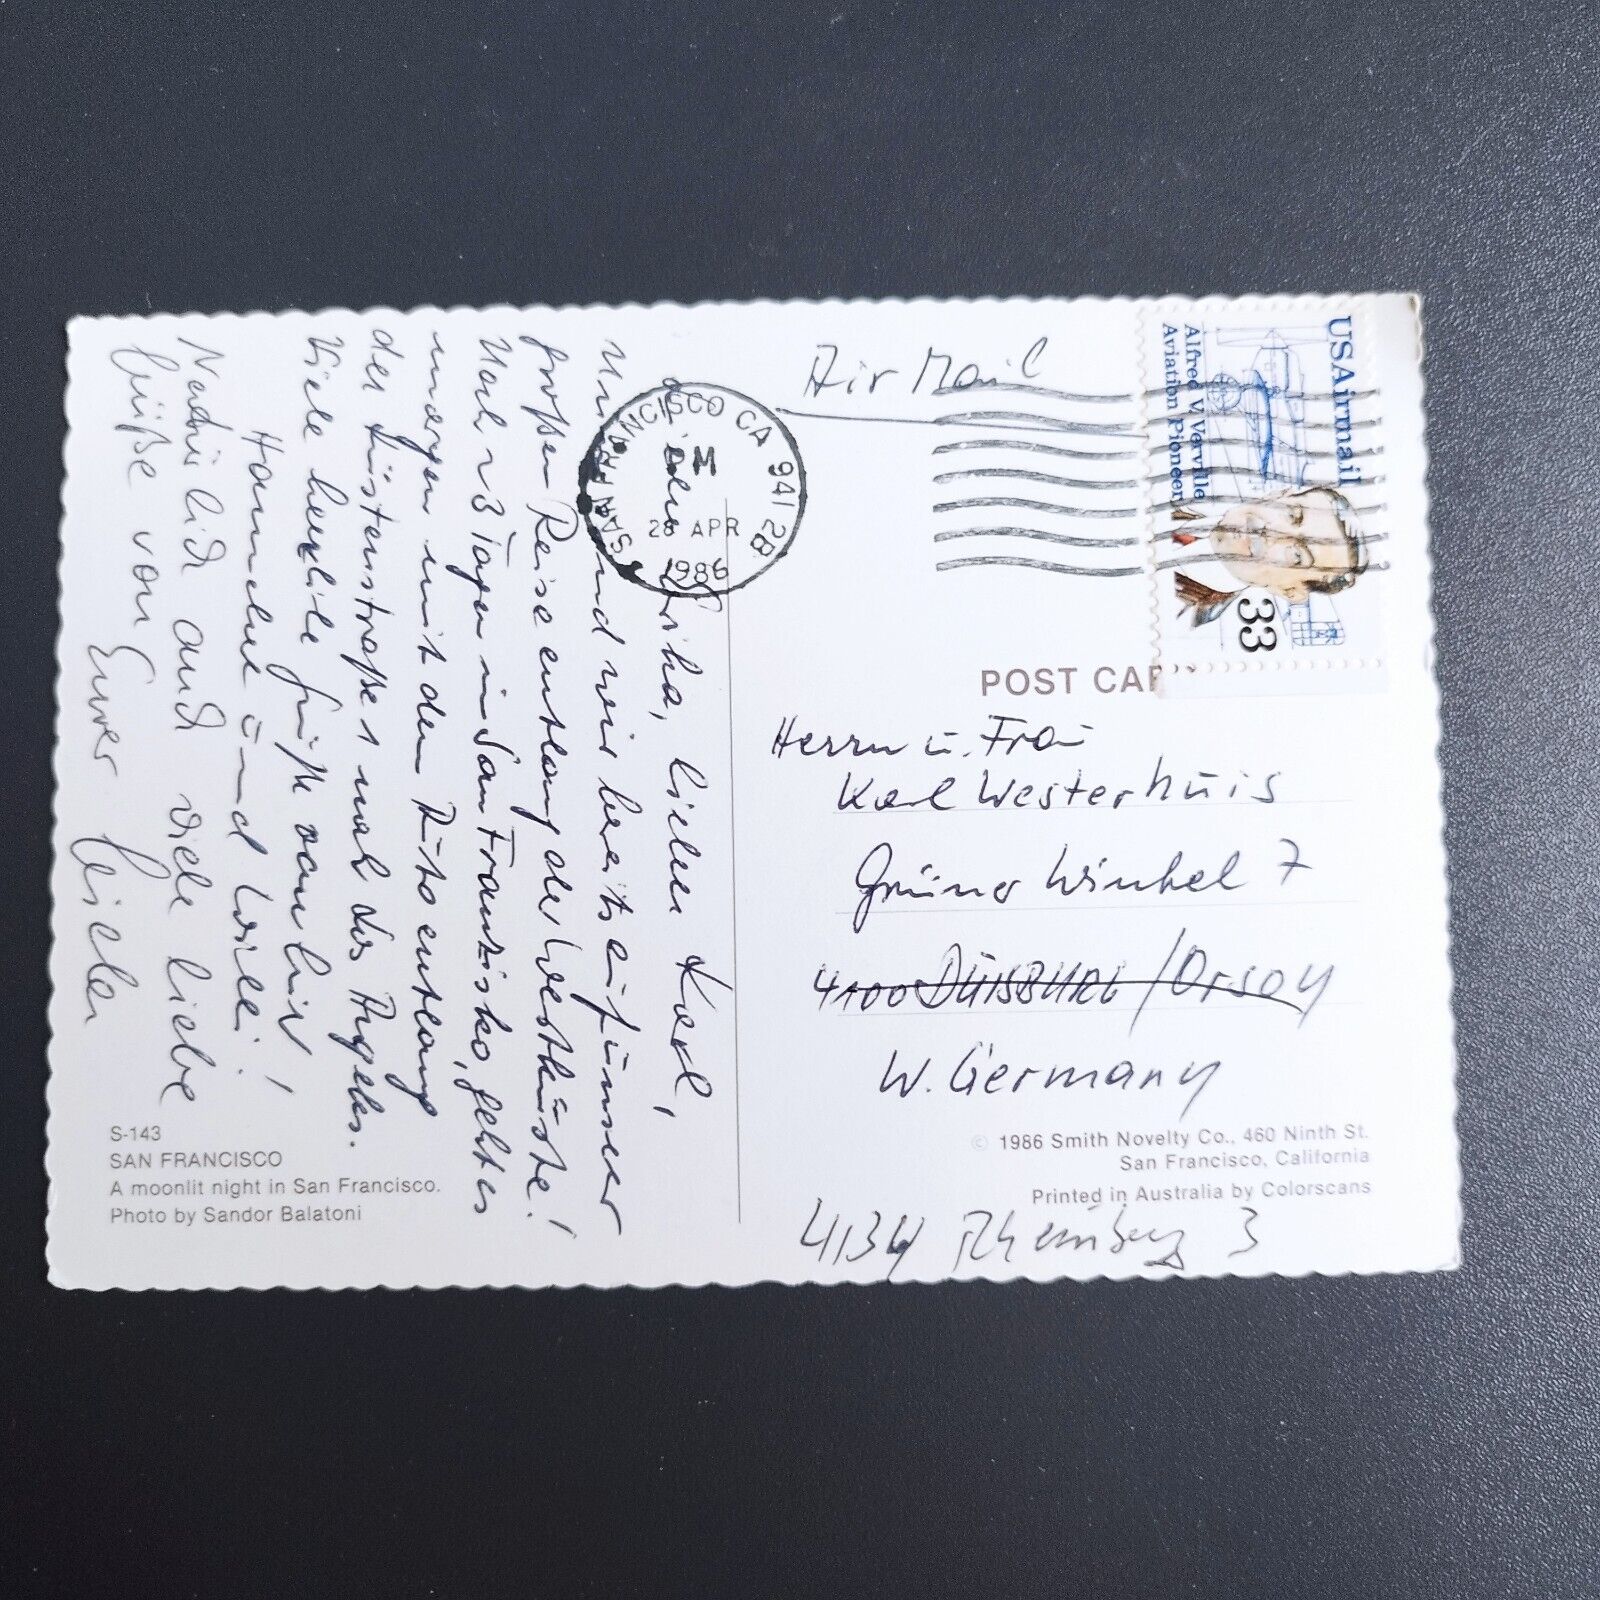 Erika, lieber Karl,
Nun sind wir bereits auf unser
großen Reise entlang der Westküste!
Nach 3 Tagen in San Franzisko, geht es
morgen mit dem Auto entlang
der Küstenstraße nach Los Angeles.
Viele herzliche Grüße von hier
Hannelie und Willi!
Natürlich auch viele liebe
Grüße von Eurer
Air Mail
USAirmail
Alfred V. Verville
Aviation Pioneer
33
SAN FRANCISCO CA 941 2B
28 APR
1986
POST CAR
Herrn u. Frau
Karl Westerhuis
Grüner Winkel 7
4100 DUISBURG / Orsoy
W. Germany
© 1986 Smith Novelty Co., 460 Ninth St.
San Francisco, California
Printed in Australia by Colorscans
4134 Rheinberg 3
S-143
SAN FRANCISCO
A moonlit night in San Francisco.
Photo by Sandor Balatoni